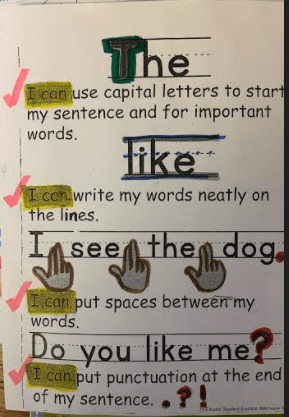 The
I can use capital letters to start
my sentence and for important
words.
like
I can write my words neatly on
the lines.
I see the dog.
I can put spaces between my
words.
Do you like me?
I can put punctuation at the end
of my sentence. . ? !